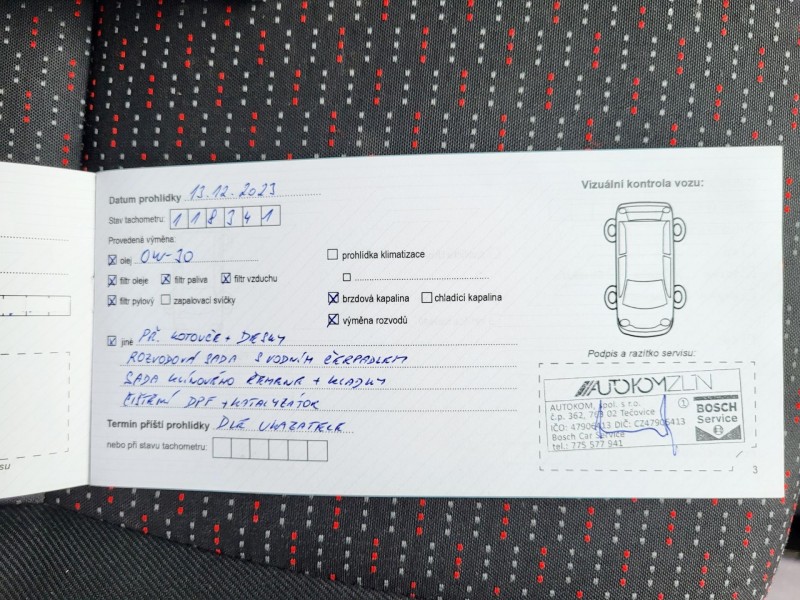 Datum prohlídky 13.12.2023
Stav tachometru: 118341
Provedená výměna:
olej 0W-30
prohlídka klimatizace
filtr oleje filtr paliva filtr vzduchu
filtr pylový zapalovací svíčky
brzdová kapalina chladící kapalina
výměna rozvodů
jiné PŘ. KOTOUČE + DESKY
ROZVODOVÁ SADA S VODNÍM ČERPADLEM
SADA KLÍNOVÉHO ŘEMENE + KLADKY
ČIŠTĚNÍ DPF + KATALYZÁTOR
Termín příští prohlídky DLE UKAZATELE
nebo při stavu tachometru:
Vizuální kontrola vozu:
Podpis a razítko servisu:
AUTOKOM ZLÍN
AUTOKOM, spol. s r.o.
č.p. 362, 763 02 Tečovice
IČO: 47906413 DIČ: CZ47906413
Bosch Car Service
tel.: 775 577 941
1
BOSCH
Service
3
su